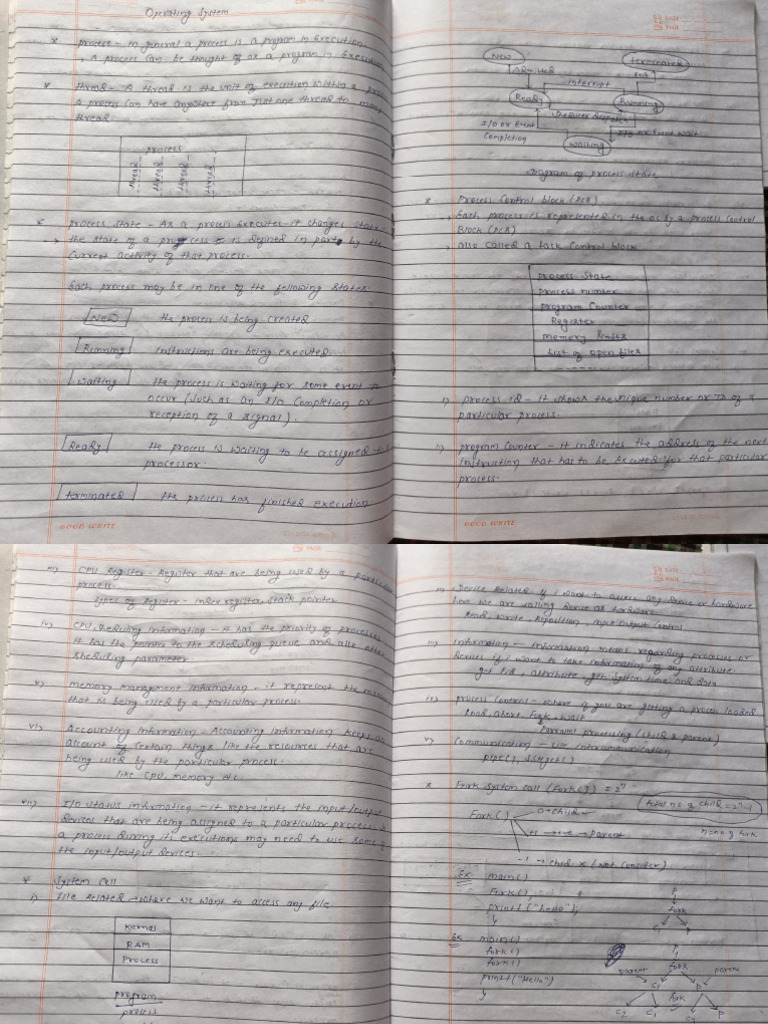 Operating System
* process - In general a process is a program in Execution.
, A process can be thought of as a program in Execution
* thread - A thread is the unit of execution within a process
a process can have anywhere from Just one thread to many
thread.
process
thread thread thread thread
* process State - As a process Executes it changes State
the state of a process is defined in part by the
Current activity of that process.
Each process may be in one of the following States.
New the process is being created
Running Instructions are being executed.
Waiting the process is waiting for some event to
occur (Such as an I/O Completion or
reception of a signal).
Ready the process is waiting to be assigned to
processor.
terminated the process has finished execution
GOOD WRITE
New terminated
Admitted exit
Interrupt
Ready Running
I/O or Event
Completion
I/O or Event wait
Waiting
Diagram of process State
* Process Control block (PCB)
, Each process is represented in the os by a process Control
Block (PCB)
, also called a task Control block
process State
process number
program Counter
Register
memory limits
list of open files
i) process id - it shows the unique number or ID of a
particular process.
ii) program Counter - it indicates the address of the next
Instruction that has to be Executed for that particular
process.
GOOD WRITE
iii) CPU Register - Register that are being used by a particular
process.
types of Register - index register, Stack pointer
iv) CPU Sheduling information - it has the priority of processes
it has the pointer to the scheduling queue and also other
Sheduling parameter
v) memory management information - it represent the memory
that is being used by a particular process.
vi) Accounting information - Accounting information keeps an
account of certain things like the resources that are
being used by the particular process.
like CPU, memory etc.
vii) I/O status information - it represents the input/output
devices that are being assigned to a particular process
a process during its executions may need to use some of
the input/output devices.
* System Cell
i) file Related - where we want to access any file
Kernal
RAM
Process
program
process
ii) Device Related if i want to access any device or hardware
here we are calling device as hardware.
Read, write, Reposition, input/output Control
iii) information - information means regarding processes or
devices if i want to take information of any attribute.
get Pid, attribute, get system time and data
iv) process Control - where if you are getting a process loaded
load, abort, Fork, wait
Parallel processing (child & parent)
v) Communication - use intercommunication
pipe(), SShget()
* Fork System call (Fork()) = 2ⁿ
total no of child = 2ⁿ-1
Fork() 0 → child
+1 → +ve → parent
n = no of fork
-1 → child x (not Consider)
Ex: main()
fork();
printf("hello");
}
P
fork
C1 P
Ex: main()
fork()
fork()
printf("Hello")
}
P
fork
parent parent
C1 P
fork
C2 C1 C3 P